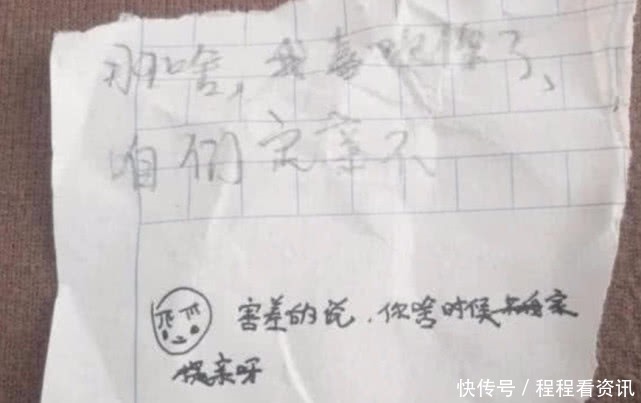 那啥，我喜欢你了、
咱们定亲不
害羞的说，你啥时候来我家
提亲呀
快传号 / 程程看资讯